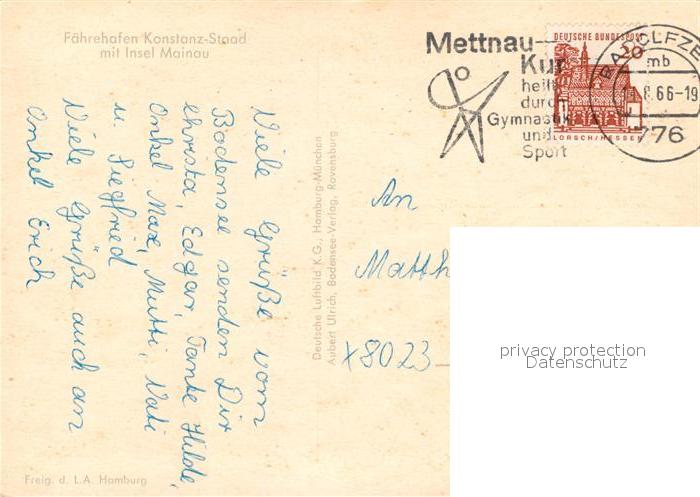 Fährehafen Konstanz-Staad
mit Insel Mainau
Viele Grüße vom
Bodensee senden Dir
Christa, Edgar, Tante Hilde,
Onkel Max, Mutti, Vati
u. Siegfried
Viele Grüße auch an
Onkel Erich
Freig. d. L.A. Hamburg
Deutsche Luftbild K.G., Hamburg-München
Aubert Ulrich, Bodensee-Verlag, Ravensburg
Mettnau
Kur
heilt
durch
Gymnastik
und
Sport
DEUTSCHE BUNDESPOST
20
LORSCH/HESSEN
mb
8.66-19
776
An
Matth
X8023
privacy protection
Datenschutz